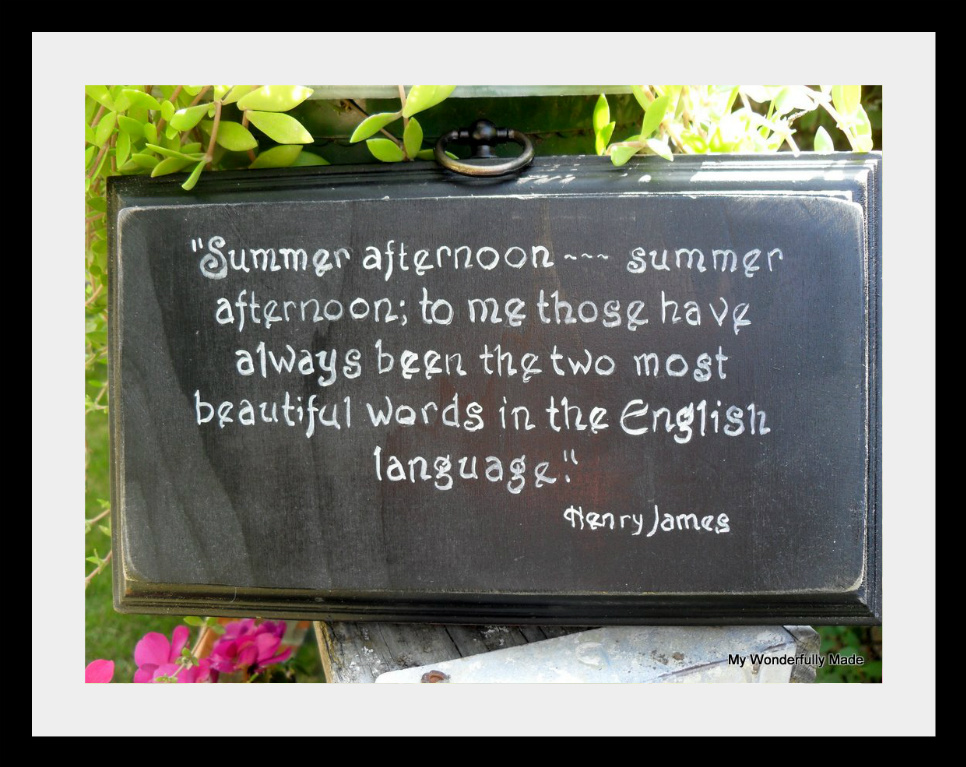 "Summer afternoon ~~~ summer
afternoon; to me those have
always been the two most
beautiful words in the English
language."
Henry James
My Wonderfully Made